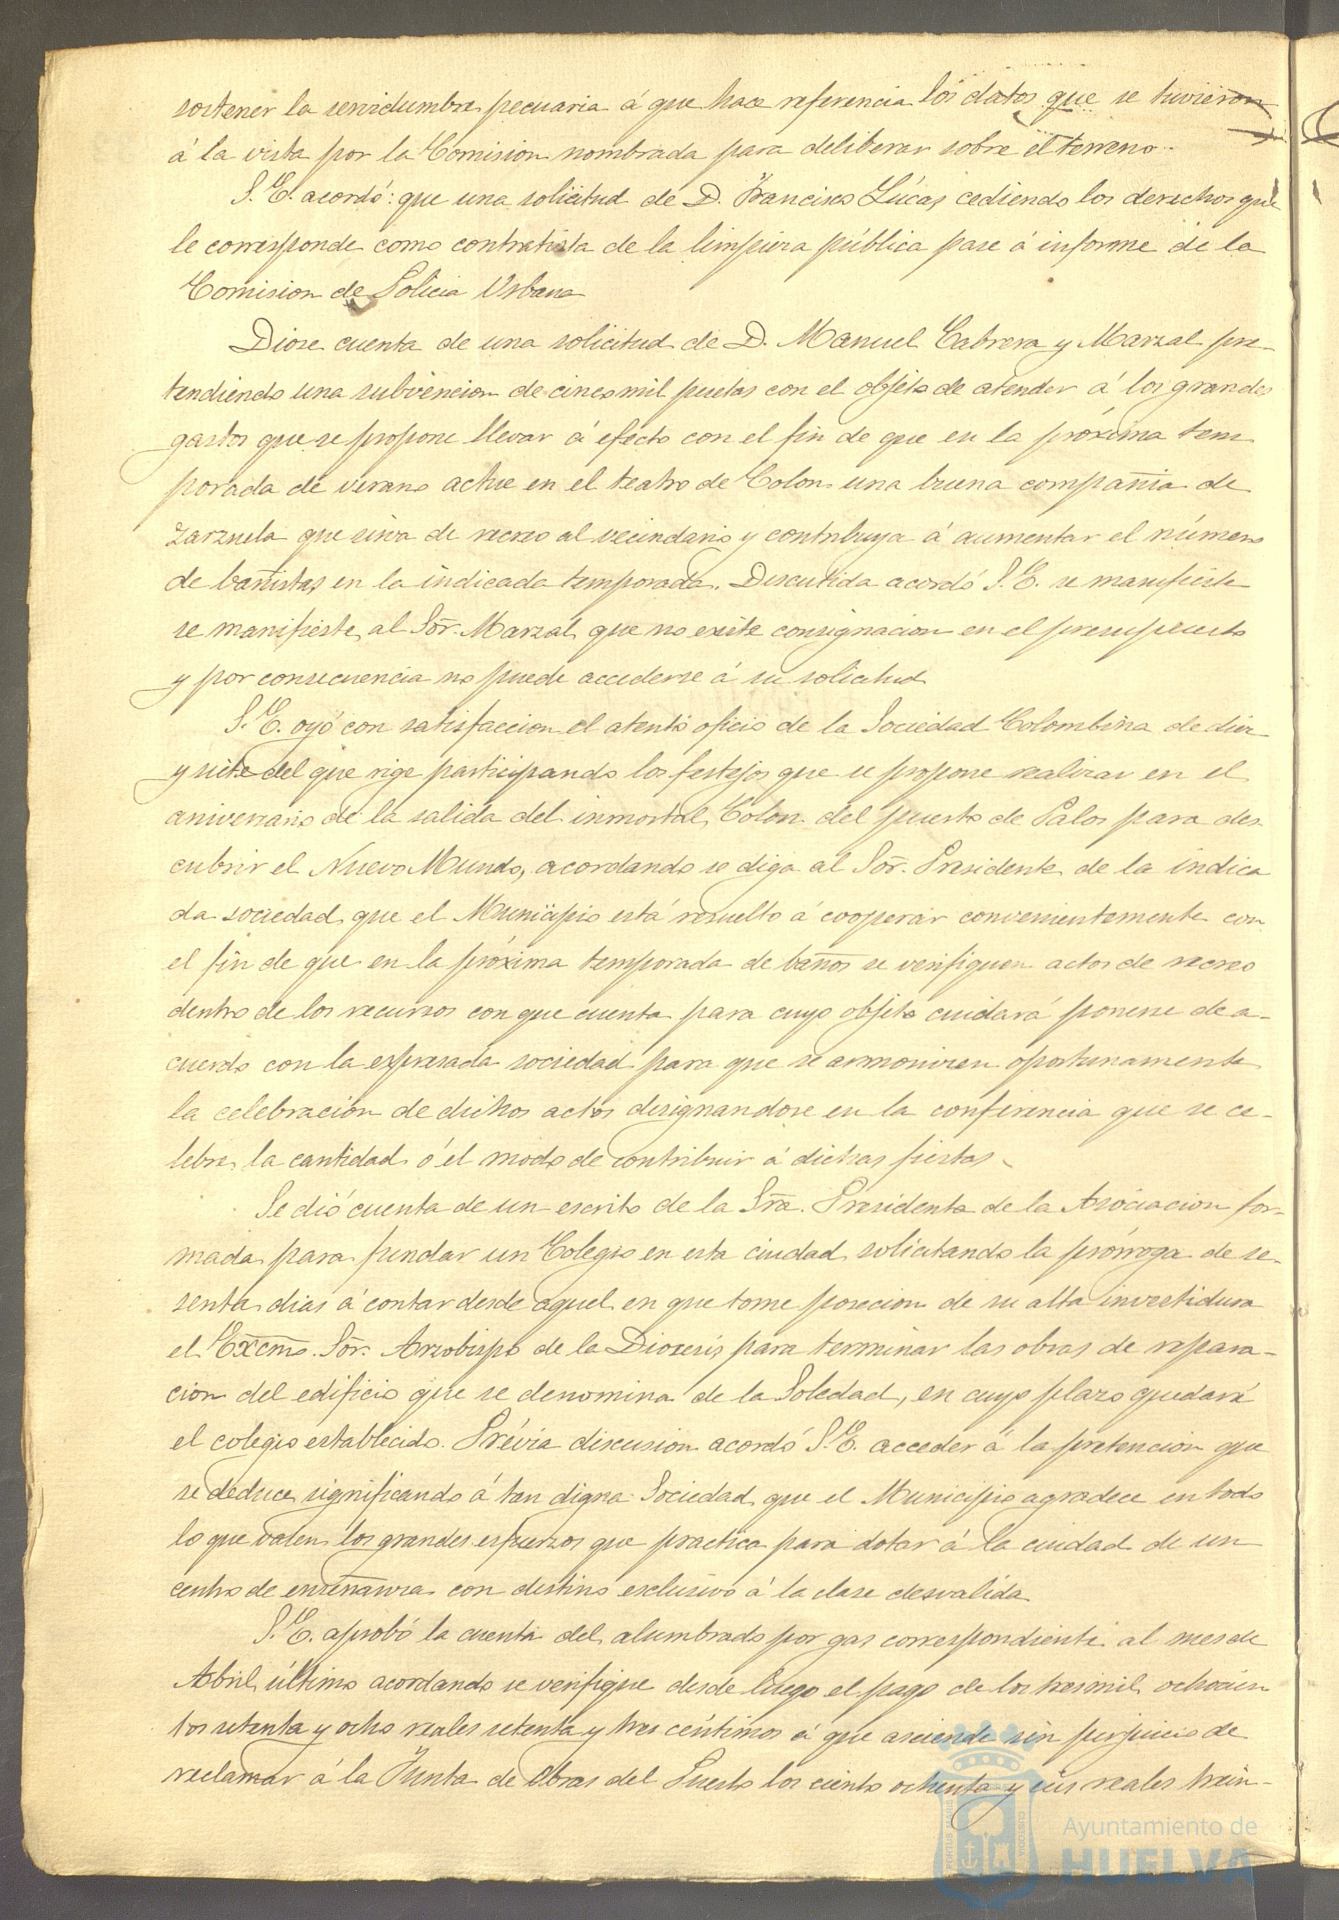 sostener la servidumbre pecuaria á que hace referencia los datos que se tuvieron
á la vista por la Comision nombrada para deliberar sobre el terreno.
S. E. acordó: que una solicitud de D. Francisco Lúcas cediendo los derechos que
le corresponde como contratista de la limpieza pública pase á informe de la
Comision de Policia Urbana
Diose cuenta de una solicitud de D. Manuel Cabrera y Marzal pre-
tendiendo una subvencion de cinco mil pesetas con el objeto de atender á los grandes
gastos que se propone llevar á efecto con el fin de que en la próxima tem
porada de verano actue en el teatro de Colon una buena compañia de
zarzuela que sirva de recreo al vecindario y contribuya á aumentar el número
de bañistas en la indicada temporada. Discutida acordó S. E. se manifieste
se manifieste al Sor. Marzal que no existe consignacion en el presupuesto
y por consecuencia no puede accederse á su solicitud
S. E. oyó con satisfaccion el atento oficio de la Sociedad Colombina de diez
y siete del que rige participando los festejos que se propone realizar en el
aniversario de la salida del inmortal Colon del puerto de Palos para des
cubrir el Nuevo Mundo, acordando se diga al Sor. Presidente de la indica
da sociedad que el Municipio está resuelto á cooperar convenientemente con
el fin de que en la próxima temporada de baños se verifiquen actos de recreo
dentro de los recursos con que cuenta para cuyo objeto cuidará ponerse de a-
cuerdo con la expresada sociedad para que se armonicen oportunamente
la celebracion de dichos actos designandose en la conferencia que se ce-
lebre la cantidad ó el modo de contribuir á dichas fiestas
Se dió cuenta de un escrito de la Sra. Presidenta de la Asociacion for-
mada para fundar un Colegio en esta ciudad solicitando la prórroga de se-
senta dias á contar desde aquel en que tome posecion de su alta investidura
el Excmo. Sor. Arzobispo de la Diocesis para terminar las obras de repara-
cion del edificio que se denomina de la Soledad, en cuyo plazo quedará
el colegio establecido. Prévia discusion acordó S. E. acceder á la pretencion que
se deduce significando á tan digna Sociedad que el Municipio agradece en todo
lo que valen los grandes esfuerzos que practica para dotar á la ciudad de un
centro de enseñanza con destino exclusivo á la clase desvalida
S. E. aprobó la cuenta del alumbrado por gas correspondiente al mes de
Abril último acordando se verifique desde luego el pago de los tres mil ochocien
tos setenta y ocho reales setenta y tres céntimos á que asciende sin perjuicio de
reclamar á la Junta de Obras del Puerto los ciento ochenta y seis reales trein-
Ayuntamiento de
HUELVA